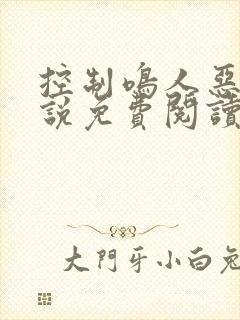 控制鳴人惡
說免費閱讀
大門牙小白兔